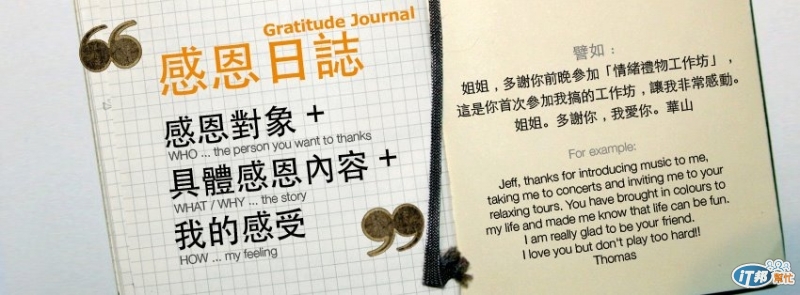 Gratitude Journal
感恩日誌
感恩對象 +
WHO ... the person you want to thanks
具體感恩內容 +
WHAT / WHY ... the story
我的感受
HOW ... my feeling
譬如：
姐姐，多謝你前晚參加「情緒禮物工作坊」，
這是你首次參加我搞的工作坊，讓我非常感動。
姐姐。多謝你，我愛你。華山
For example:
Jeff, thanks for introducing music to me,
taking me to concerts and inviting me to your
relaxing tours. You have brought in colours to
my life and made me know that life can be fun.
I am really glad to be your friend.
I love you but don't play too hard!!
Thomas
iT邦幫忙